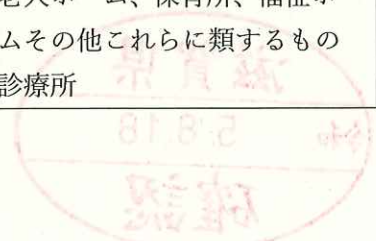 老人ホーム、保育所、福祉ホ
ムその他これらに類するもの
診療所
滋賀県
令和
5.8.18
確認